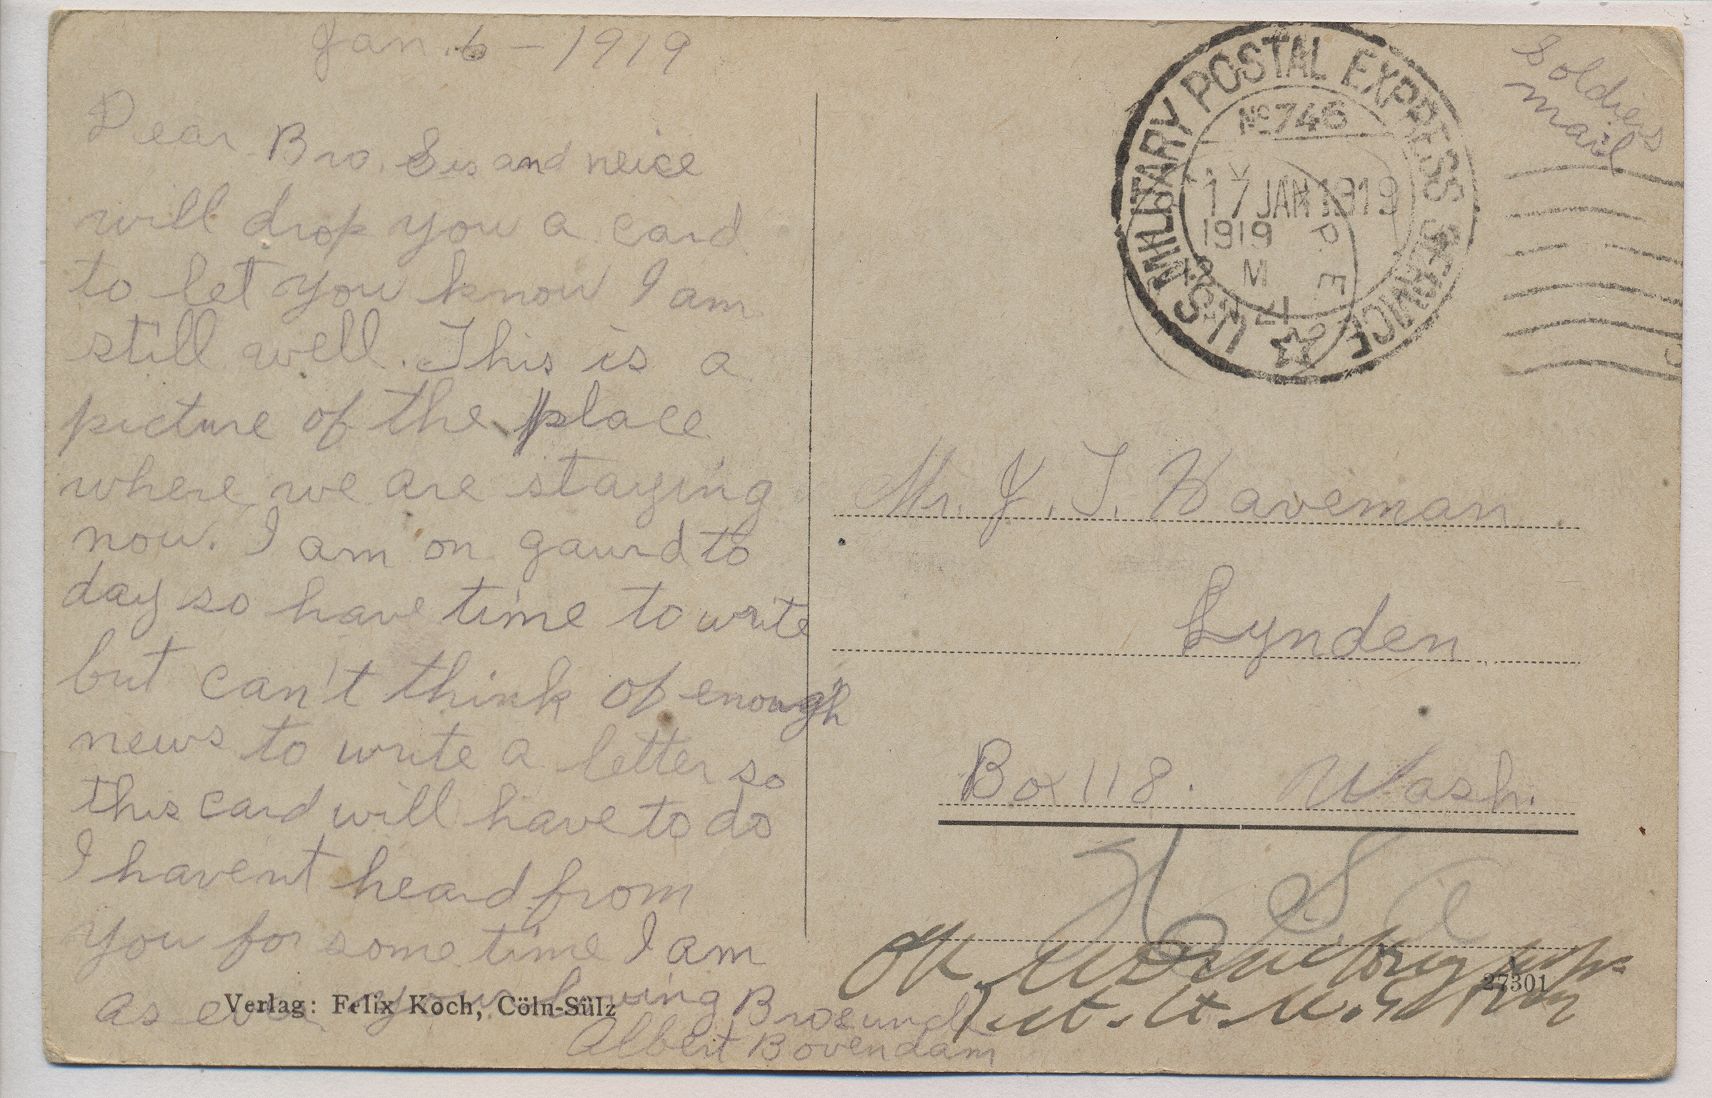 Jan. 6 - 1919
Dear Bro. Sis and neice
will drop you a card
to let you know I am
still well. This is a
picture of the place
where we are staying
now. I am on gaurd to
day so have time to write
but can't think of enough
news to write a letter so
this card will have to do
I havent heard from
you for some time I am
as ever your loving Bro & uncle
Albert Bovendam
Verlag: Felix Koch, Cöln-Sülz
U.S. MILITARY POSTAL EXPRESS SERVICE
No 746
17 JAN 1919
1919
M
P E
Soldiers
mail
Mr. J. T. Haveman
Lynden
Box 118. Wash.
U S a
OK
27301